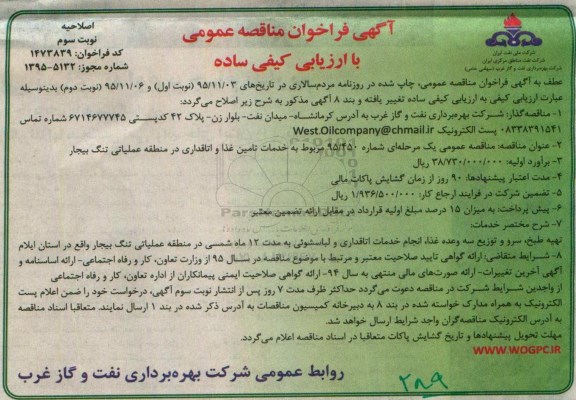 اصلاحیه
نوبت سوم
کد فراخوان: ۱۴۷۳۸۳۹
شماره مجوز: ۱۳۹۵-۵۱۳۲
آگهی فراخوان مناقصه عمومی
با ارزیابی کیفی ساده
شرکت ملی نفت ایران
شرکت نفت مناطق مرکزی ایران
شرکت بهره‌برداری نفت و گاز غرب (سهامی خاص)
عطف به آگهی فراخوان مناقصه عمومی، چاپ شده در روزنامه مردم‌سالاری در تاریخ‌های ۹۵/۱۱/۰۳ (نوبت اول) و ۹۵/۱۱/۰۶ (نوبت دوم) بدینوسیله
عبارت ارزیابی کیفی به ارزیابی کیفی ساده تغییر یافته و بند ۸ آگهی مذکور به شرح زیر اصلاح می‌گردد:
۱- مناقصه‌گذار: شرکت بهره‌برداری نفت و گاز غرب به آدرس کرمانشاه- میدان نفت- بلوار زن- پلاک ۴۲ کدپستی ۶۷۱۴۶۷۷۷۴۵ شماره تماس
۰۸۳۳۸۳۹۱۵۴۱ پست الکترونیک West.Oilcompany@chmail.ir
۲- عنوان مناقصه: مناقصه عمومی یک مرحله‌ای شماره ۹۵/۴۵۰ مربوط به خدمات تامین غذا و اتاقداری در منطقه عملیاتی تنگ بیجار
۳- برآورد اولیه: ۳۸/۷۳۰/۰۰۰/۰۰۰ ریال
۴- مدت اعتبار پیشنهادها: ۹۰ روز از زمان گشایش پاکات مالی
۵- تضمین شرکت در فرایند ارجاع کار: ۱/۹۳۶/۵۰۰/۰۰۰ ریال
۶- پیش پرداخت: به میزان ۱۵ درصد مبلغ اولیه قرارداد در مقابل ارائه تضمین معتبر
۷- شرح مختصر خدمات:
تهیه طبخ، سرو و توزیع سه وعده غذا، انجام خدمات اتاقداری و لباسشوئی به مدت ۱۲ ماه شمسی در منطقه عملیاتی تنگ بیجار واقع در استان ایلام
۸- شرایط متقاضی: ارائه گواهی تایید صلاحیت معتبر و مرتبط با موضوع مناقصه در سال ۹۵ از وزارت تعاون، کار و رفاه اجتماعی- ارائه اساسنامه و
آگهی آخرین تغییرات- ارائه صورت‌های مالی منتهی به سال ۹۴- ارائه گواهی صلاحیت ایمنی پیمانکاران از اداره تعاون، کار و رفاه اجتماعی
از واجدین شرایط شرکت در مناقصه دعوت می‌گردد حداکثر ظرف مدت ۷ روز پس از انتشار نوبت سوم آگهی، درخواست خود را ضمن اعلام پست
الکترونیک به همراه مدارک خواسته شده در بند ۸ به دبیرخانه کمیسیون مناقصات به آدرس ذکر شده در بند ۱ ارسال نمایند. متعاقبا اسناد مناقصه
به آدرس الکترونیک مناقصه‌گران واجد شرایط ارسال خواهد شد.
مهلت تحویل پیشنهادها و تاریخ گشایش پاکات متعاقبا در اسناد مناقصه اعلام می‌گردد.
WWW.WOGPC.IR
روابط عمومی شرکت بهره‌برداری نفت و گاز غرب
۲۸۹